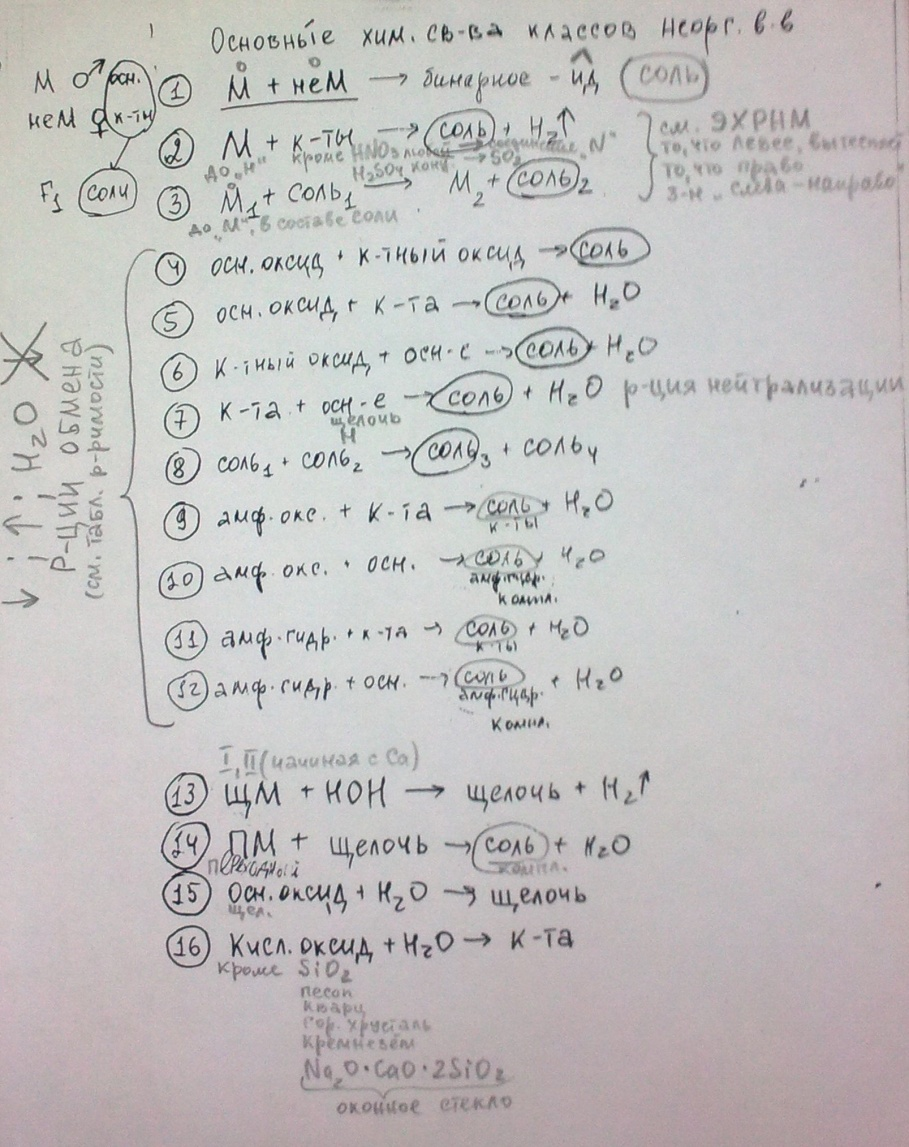 Основные хим. св-ва классов неорг. в-в
М ♂ осн.
неМ ♀ к-ты
F₁ соли
① М⁰ + неМ⁰ → бинарное - ид соль
② М + к-ты → соль + H₂↑
до „H" кроме HNO₃ любой → соединение „N"
H₂SO₄ конц. → SO₂
③ М₁⁰ + соль₁ → М₂ + соль₂
до „М", в составе соли
см. ЭХРНМ
то, что левее, вытесняет
то, что право
з-н „слева-направо"
④ осн. оксид + к-тный оксид → соль
⑤ осн. оксид + к-та → соль + H₂O
⑥ к-тный оксид + осн-е → соль + H₂O
⑦ к-та + осн-е → соль + H₂O р-ция нейтрализации
щелочь
Н
⑧ соль₁ + соль₂ → соль₃ + соль₄
⑨ амф. окс. + к-та → соль + H₂O
к-ты
⑩ амф. окс. + осн. → соль + H₂O
амф. гидр.
компл.
⑪ амф. гидр. + к-та → соль + H₂O
к-ты
⑫ амф. гидр. + осн. → соль + H₂O
амф. гидр.
компл.
↓ ; ↑ ; H₂O
Р-ЦИИ обмена
(см. табл. р-римости)
I, II (начиная с Ca)
⑬ ЩМ + HOH → щелочь + H₂↑
⑭ ПМ + щелочь → соль + H₂O
переходный компл.
⑮ Осн. оксид + H₂O → щелочь
щел.
⑯ Кисл. оксид + H₂O → к-та
кроме SiO₂
песок
кварц
гор. хрусталь
кремнезём
Na₂O·CaO·2SiO₂
оконное стекло